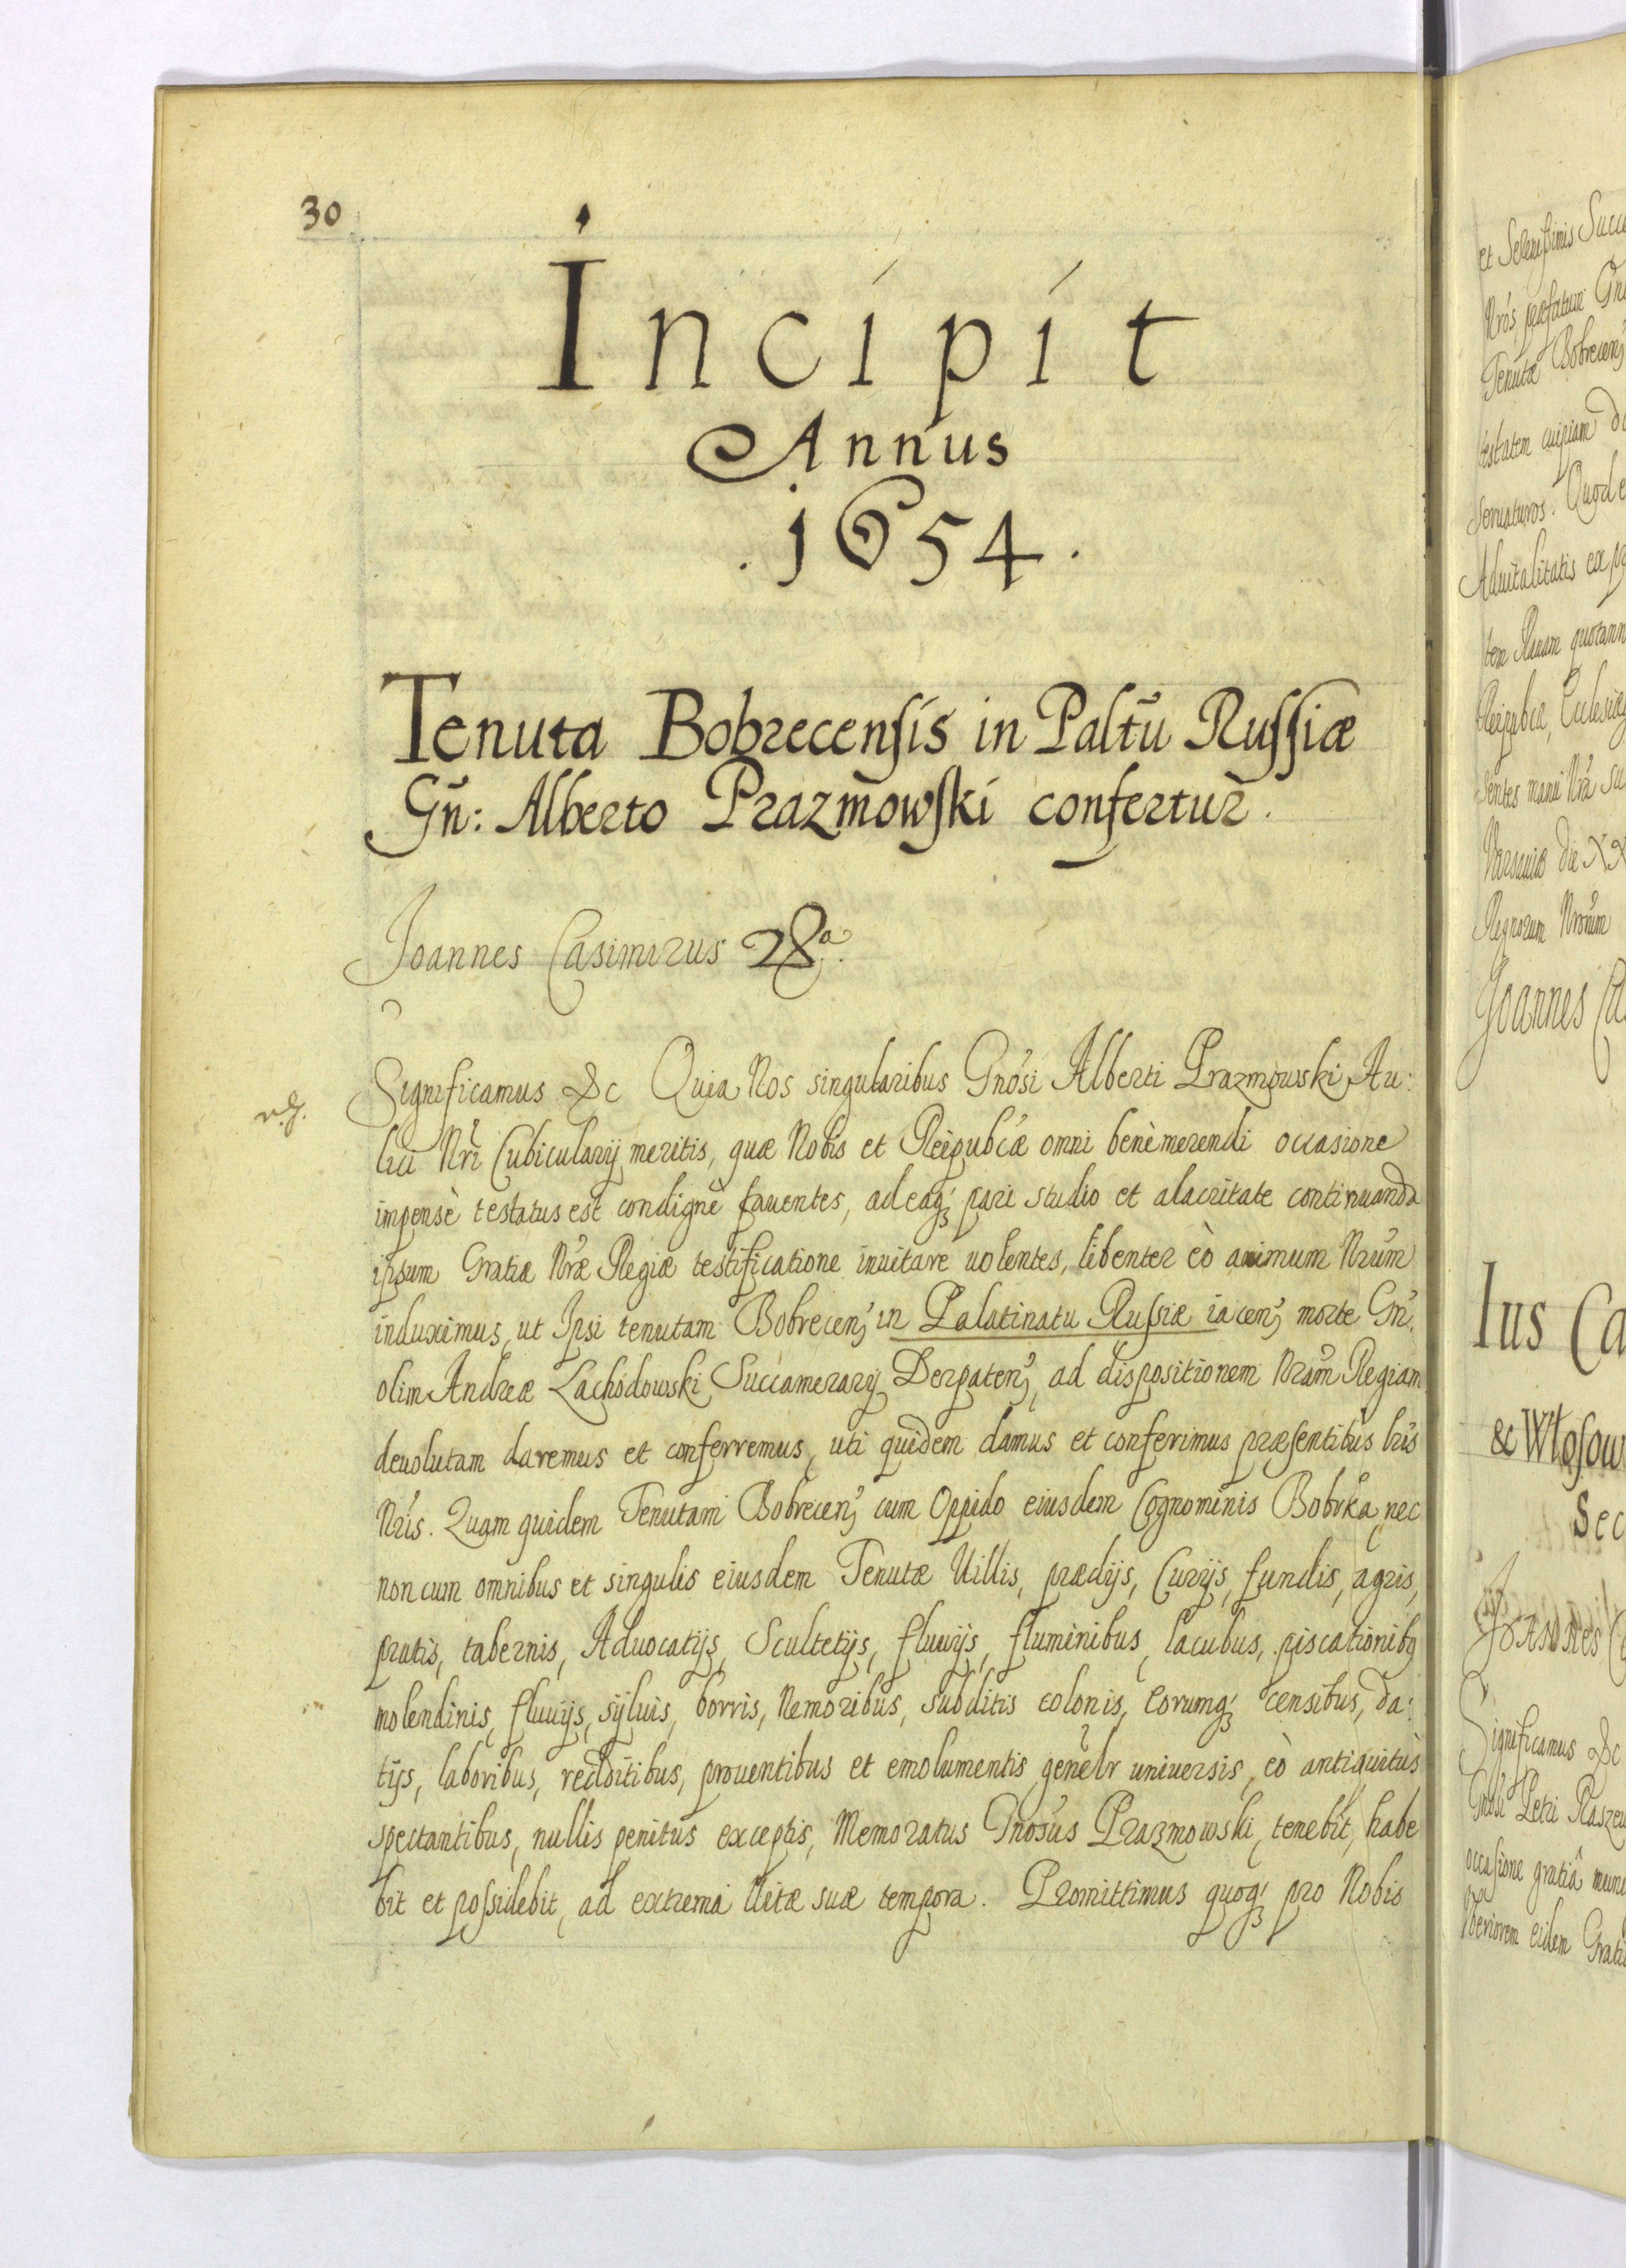 30
Incipit
Annus
.1654.
Tenuta Bobrecensis in Paltũ Russiæ
Gñ: Alberto Prazmowski confertur.
Joannes Casimirus &ª.
Significamus &c Quia Nos singularibus Gnősi Alberti Prazmowski Au:
lici Nrĩ Cubicularij meritis, quæ Nobis et Reipublæ omni benèmerendi occasione
impensè testatus est condignè fauentes, ad eaq; pari studio et alacritate continuanda
ipsum Gratiæ Nræ Regiæ testificatione inuitare uolentes, libenter eò animum Nrum
induximus, ut Ipsi tenutam Bobrecen; in Palatinatu Russiæ iacen; morte Gn:
olim Andreæ Lachodowski Succamerarij Derpaten; ad dispositionem Nram Regiam
deuolutam daremus et conferremus, uti quidem damus et conferimus præsentibus lris
Nris. Quam quidem Tenutam Bobrecen; cum Oppido eiusdem Cognominis Bobrka, nec
non cum omnibus et singulis eiusdem Tenutæ Uillis, prædijs, Curijs, fundis, agris,
pratis, tabernis, Aduocatijs, Scultetijs, fluuijs, fluminibus, lacubus, piscationibq
molendinis, fluuijs, syluis, borris, Nemoribus, subditis colonis, eorumq; censibus, da:
tijs, laboribus, redditibus, prouentibus et emolumentis genelr uniuersis, eò antiquitùs
spectantibus, nullis penitus exceptis, Memoratus Gnosus Prazmowski, tenebit, habe
bit et possidebit, ad extrema Uitæ suæ tempora. Promittimus quoq; pro Nobis
et Serenissimis
Nros præfatum
Tenutæ Bobrecen;
testatem cuipiam
seruaturos. Quod
Aduitalitatis ex
quotann
Regnorum Nrorum
Joannes
Ius Ca
& Wlosow
Sec
Joannes
Significamus &c
Petri
occasione gratiâ
Uberiorem eidem